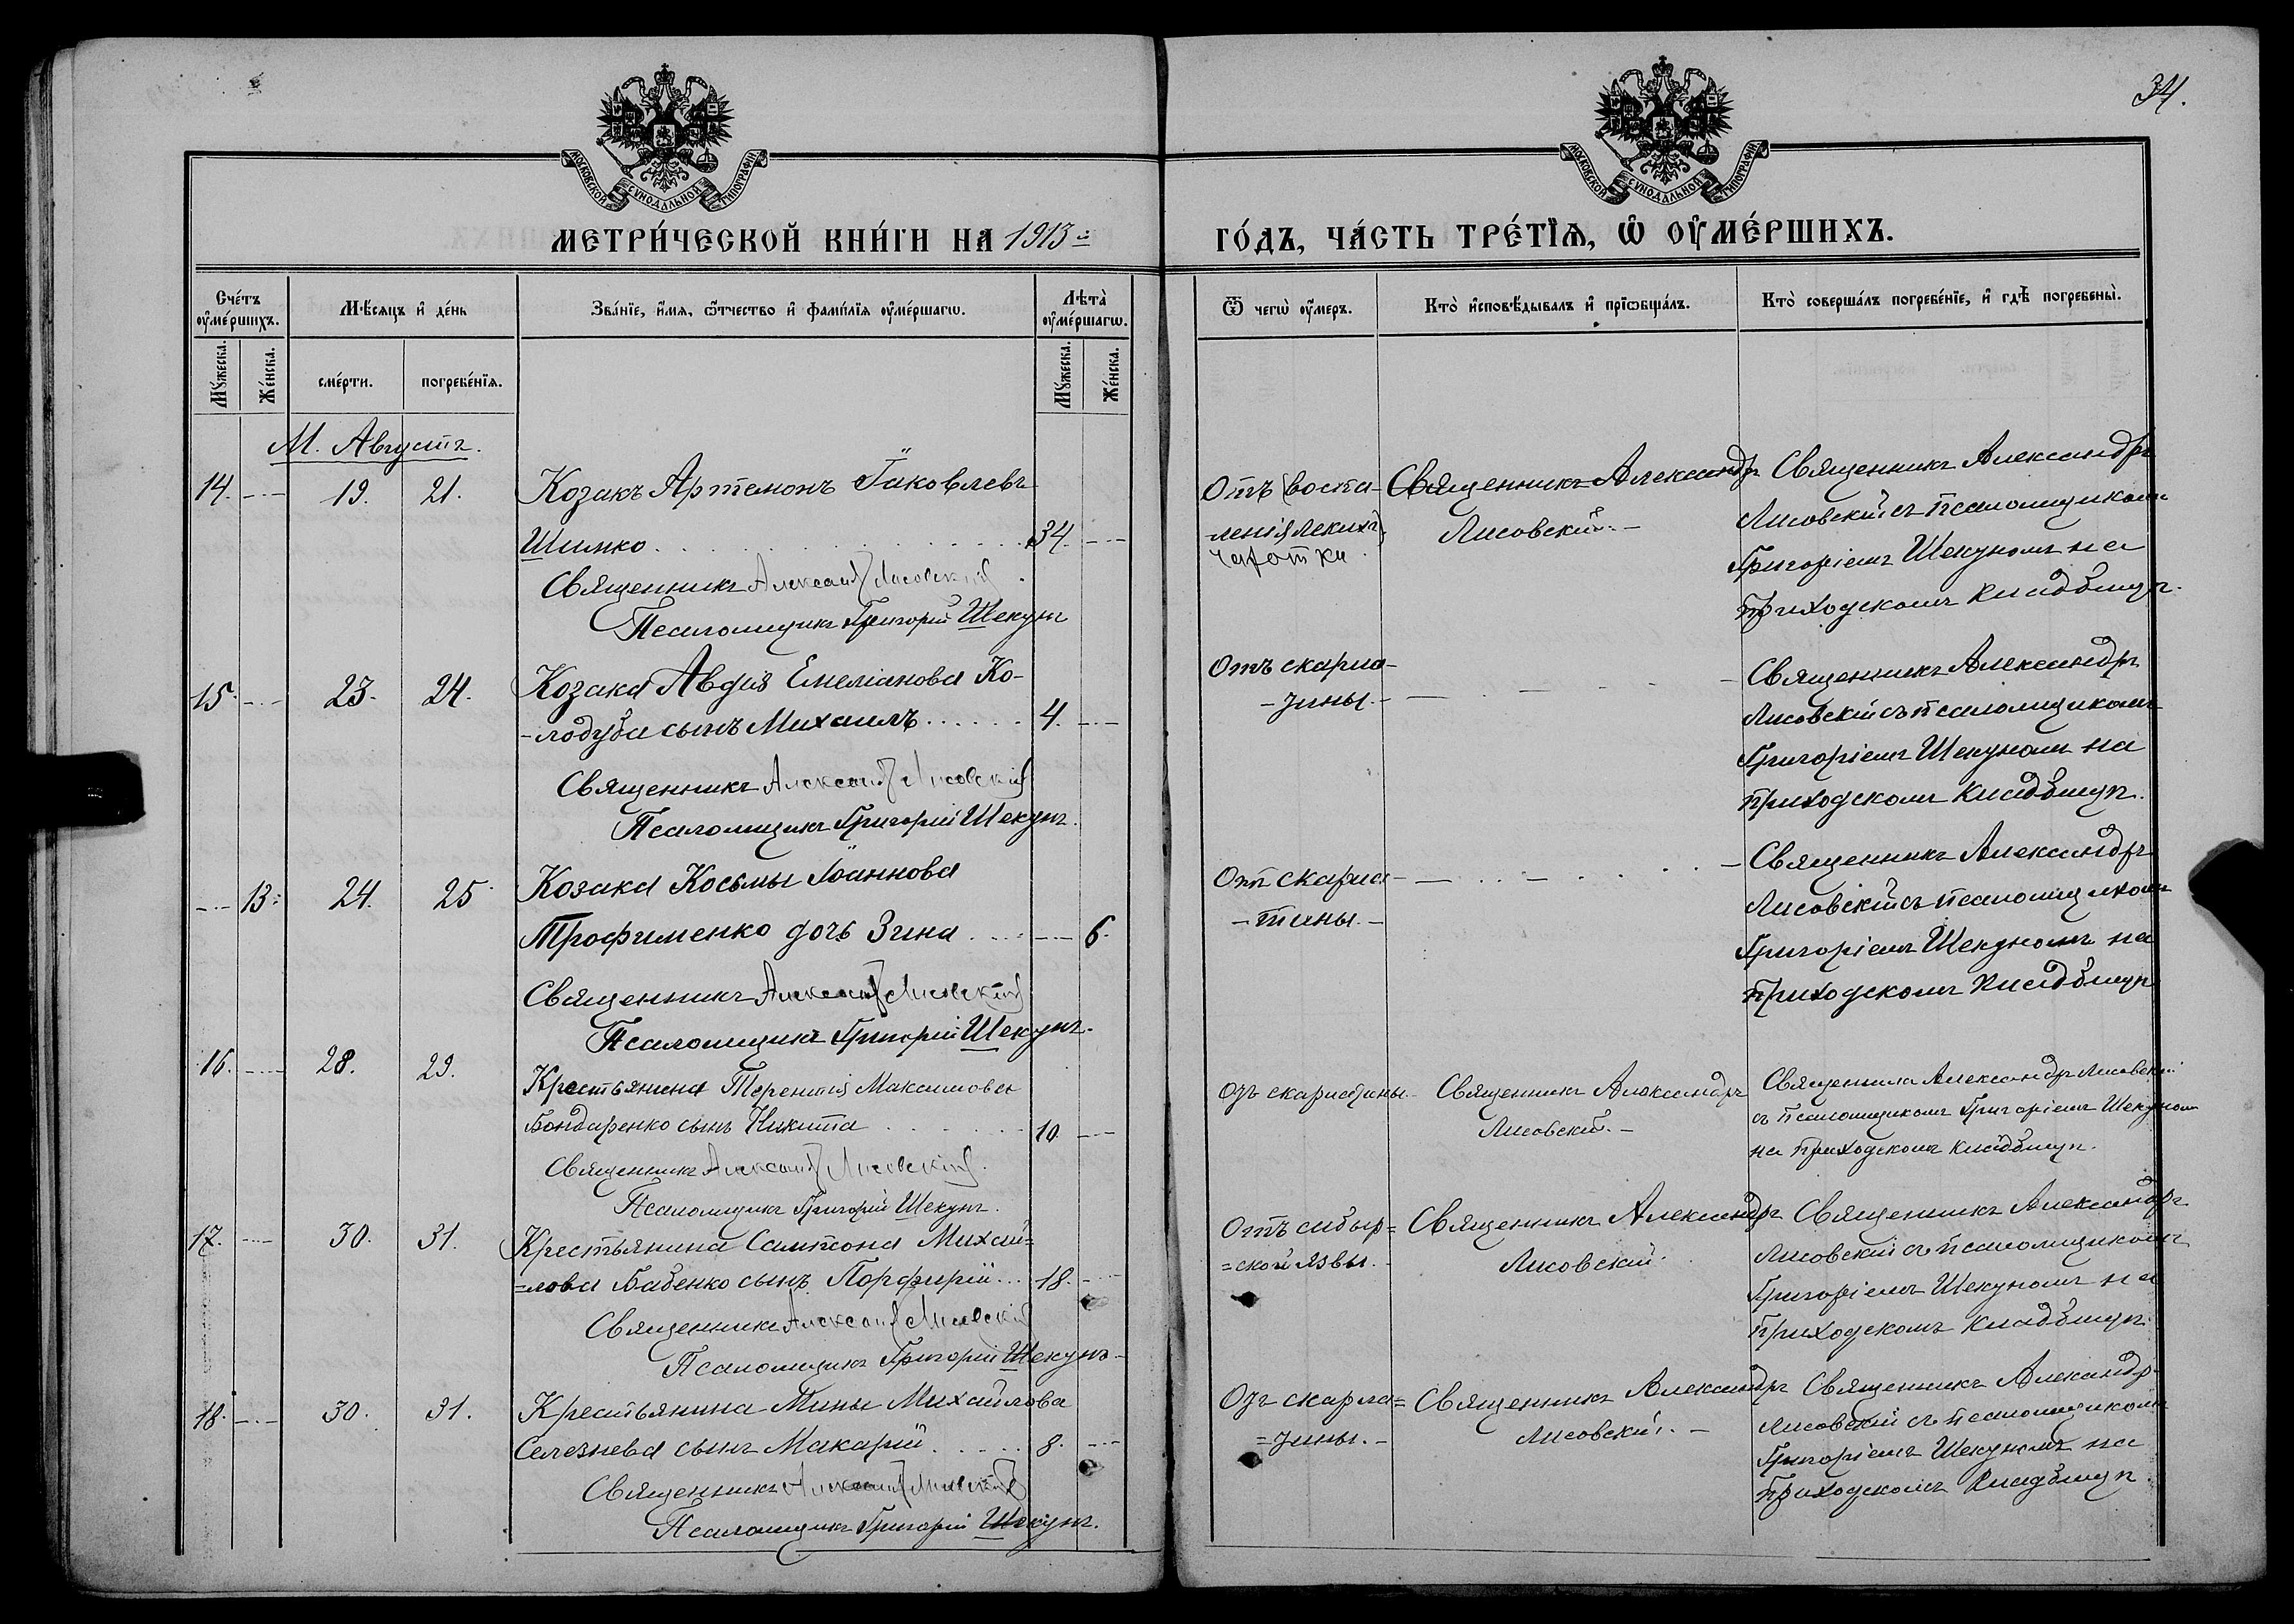 34.
МОСКОВСКОЙ СѴНОДАЛЬНОЙ ТИПОГРАФІИ
МОСКОВСКОЙ СѴНОДАЛЬНОЙ ТИПОГРАФІИ
МЕТРИ́ЧЕСКОЙ КНИ́ГИ НА 1913й
ГО́ДЪ, ЧА́СТЬ ТРЕ́ТІѦ, Ѽ ОУ҆МЕ́РШИХЪ.
Сче́тъ оу҆ме́ршихъ.
Мѣ́сяцъ и҆ де́нь
Зва́нїе, и҆́мѧ, ѻ҆́тчество и҆ фамѝлїѧ оу҆ме́ршагѡ.
Лѣта̀ оу҆ме́ршагѡ.
Ѿ чегѡ̀ оу҆́меръ.
Кто̀ и҆сповѣ́дывалъ и҆ прїѡбща́лъ.
Кто̀ соверша́лъ погребе́нїе, и҆ гдѣ̀ погребены̀.
Мꙋ́жеска.
Же́нска.
сме́рти.
погребе́нїѧ.
Мꙋ́жеска.
Же́нска.
М. Августъ.
14. 19. 21. Козакъ Артемонъ Іаковлевъ
Шимко 34.
Священникъ Александръ Лисовскій
Псаломщикъ Григорій Шекунъ
Отъ (воспа-
-ленія легкихъ)
чахотки.
Священникъ Александръ
Лисовскій. -
Священникъ Александръ
Лисовскій съ псаломщикомъ
Григоріемъ Шекуномъ на
приходскомъ кладбищѣ.
15. 23. 24. Козака Авдія Емеліанова Ко-
-лодуба сынъ Михаилъ 4.
Священникъ Александръ Лисовскій
Псаломщикъ Григорій Шекунъ.
Отъ скарла-
-зины. -
Священникъ Александръ
Лисовскій съ псаломщикомъ
Григоріемъ Шекуномъ на
приходскомъ кладбищѣ.
13. 24. 25. Козака Косьмы Іоаннова
Трофименко дочь Зина 6.
Священникъ Александръ Лисовскій
Псаломщикъ Григорій Шекунъ.
Отъ скарла-
-тины. -
Священникъ Александръ
Лисовскій съ псаломщикомъ
Григоріемъ Шекуномъ на
приходскомъ кладбищѣ
16. 28. 29. Крестьянина Терентія Максимова
Бондаренко сынъ Никита 10.
Священникъ Александръ Лисовскій.
Псаломщикъ Григорій Шекунъ.
Отъ скарлатины.
Священникъ Александръ
Лисовскій. -
Священникъ Александръ Лисовскій
съ псаломщикомъ Григоріемъ Шекуномъ
на приходскомъ кладбищѣ.
17. 30. 31. Крестьянина Сампсона Михаи=
=лова Бабенко сынъ Порфирій 18.
Священникъ Александръ Лисовскій
Псаломщикъ Григорій Шекунъ
Отъ сибир=
=ской язвы.
Священникъ Александръ
Лисовскій.
Священникъ Александръ
Лисовскій съ псаломщикомъ
Григоріемъ Шекуномъ на
приходскомъ кладбищѣ.
18. 30. 31. Крестьянина Мины Михайлова
Селезнева сынъ Макарій 8.
Священникъ Александръ Лисовскій
Псаломщикъ Григорій Шекунъ.
Отъ скарла=
=зины. -
Священникъ Александръ
Лисовскій. -
Священникъ Александръ
Лисовскій съ псаломщикомъ
Григоріемъ Шекуномъ на
приходскомъ кладбищѣ